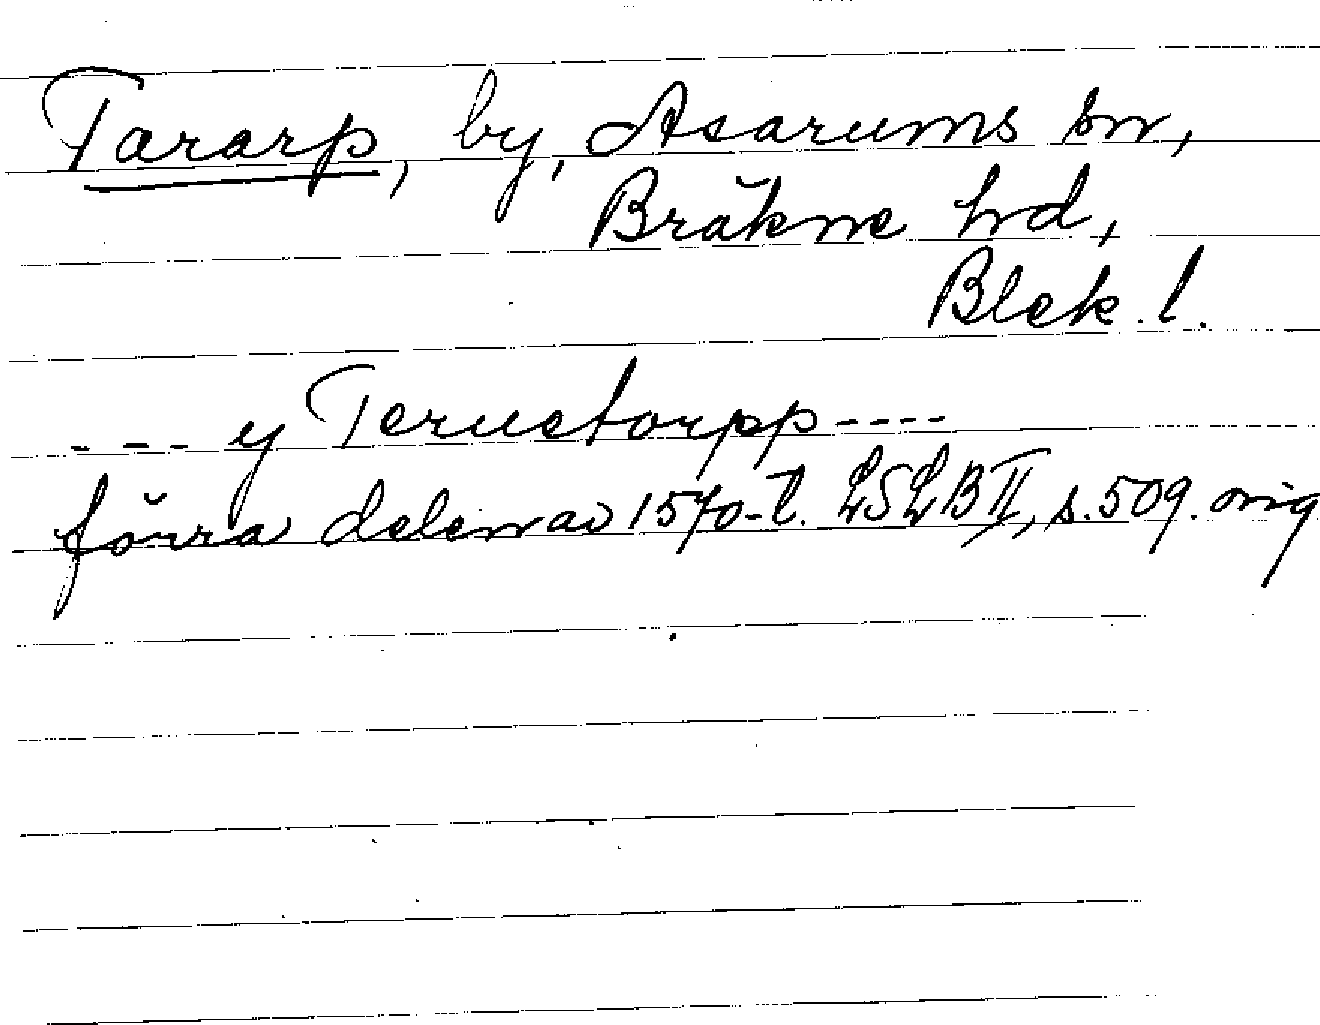 Tararp, by, Asarums sn,
Bräkne hd,
Blek. l.
--- y Teruetorpp ----
förra delen av 1570-t. LSLB II, s. 509. orig